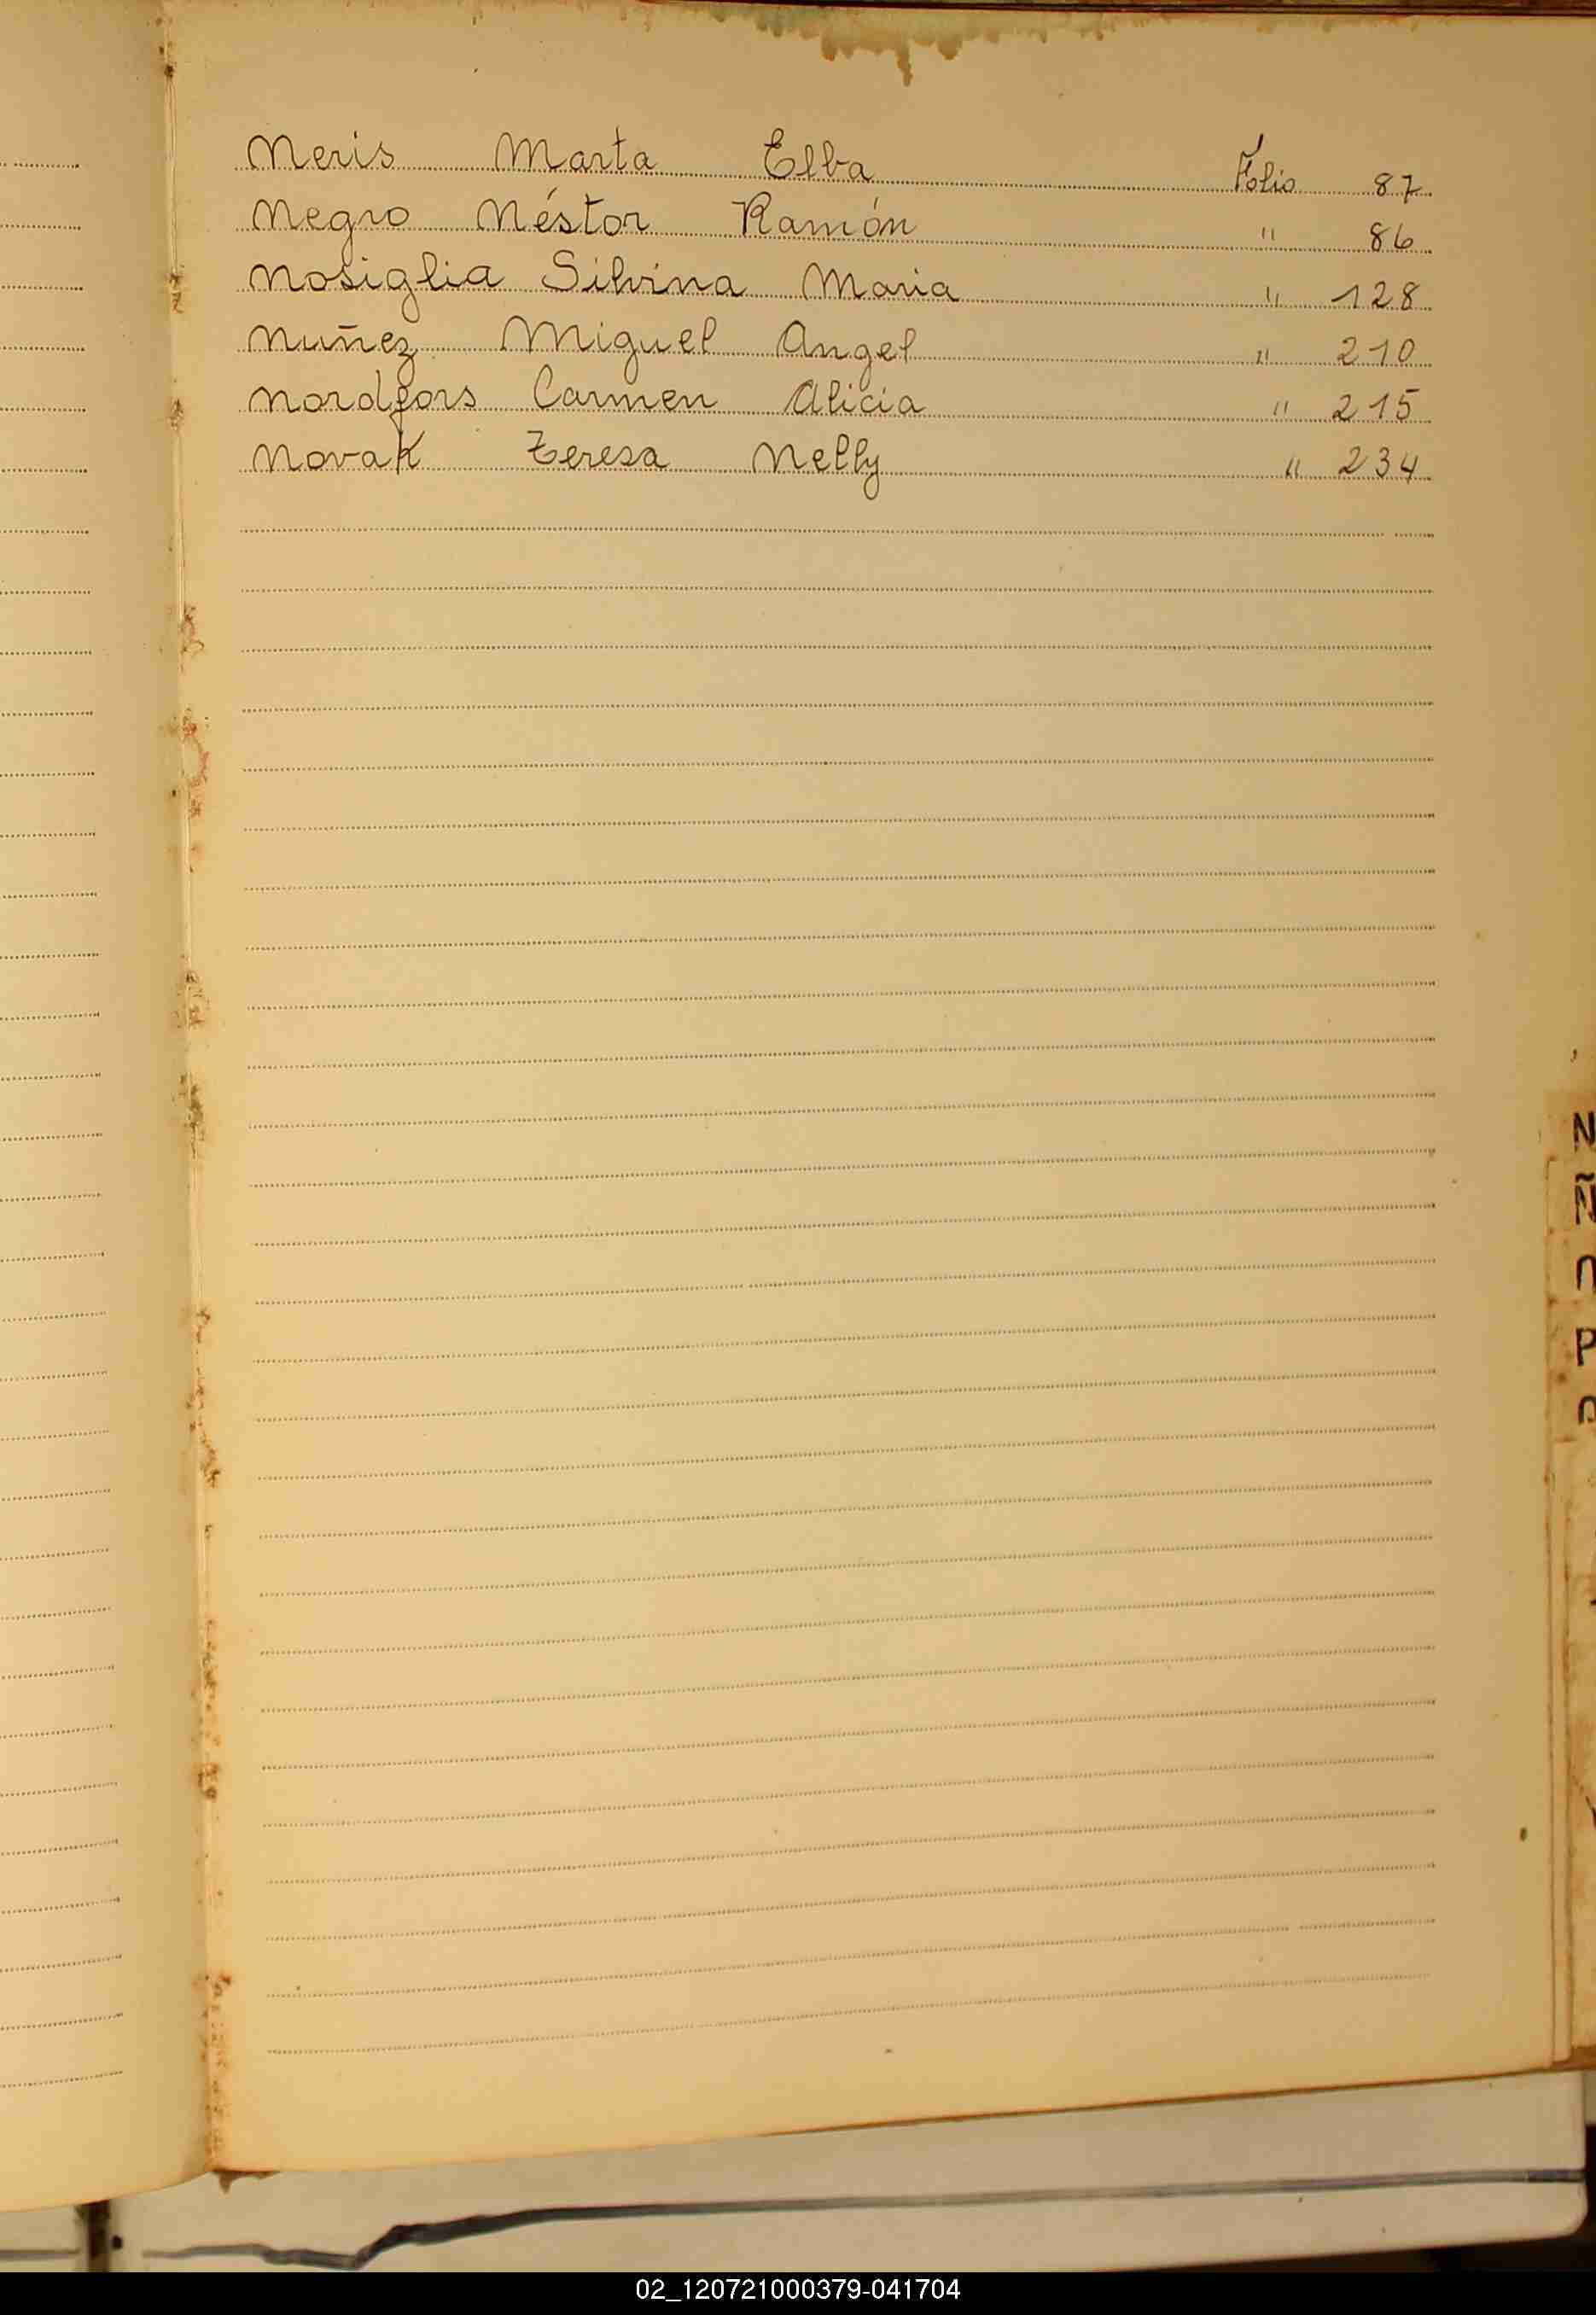 Neris Marta Elba Folio 87
Negro Néstor Ramón " 86
Nosiglia Silvina Maria " 128
Nuñez Miguel Angel " 210
Nordfors Carmen Alicia " 215
Novak Teresa Nelly " 234
N
Ñ
O
P
02_120721000379-041704